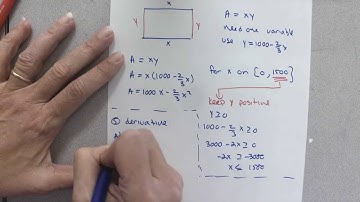 x
y
y
x
A = xy
need one variable
use y = 1000 - 2/3 x
A = xy
A = x(1000 - 2/3 x)
A = 1000x - 2/3 x²
for x on [0, 1500]
keep y positive
y ≥ 0
1000 - 2/3 x ≥ 0
3000 - 2x ≥ 0
-2x ≥ -3000
x ≤ 1500
③ derivative